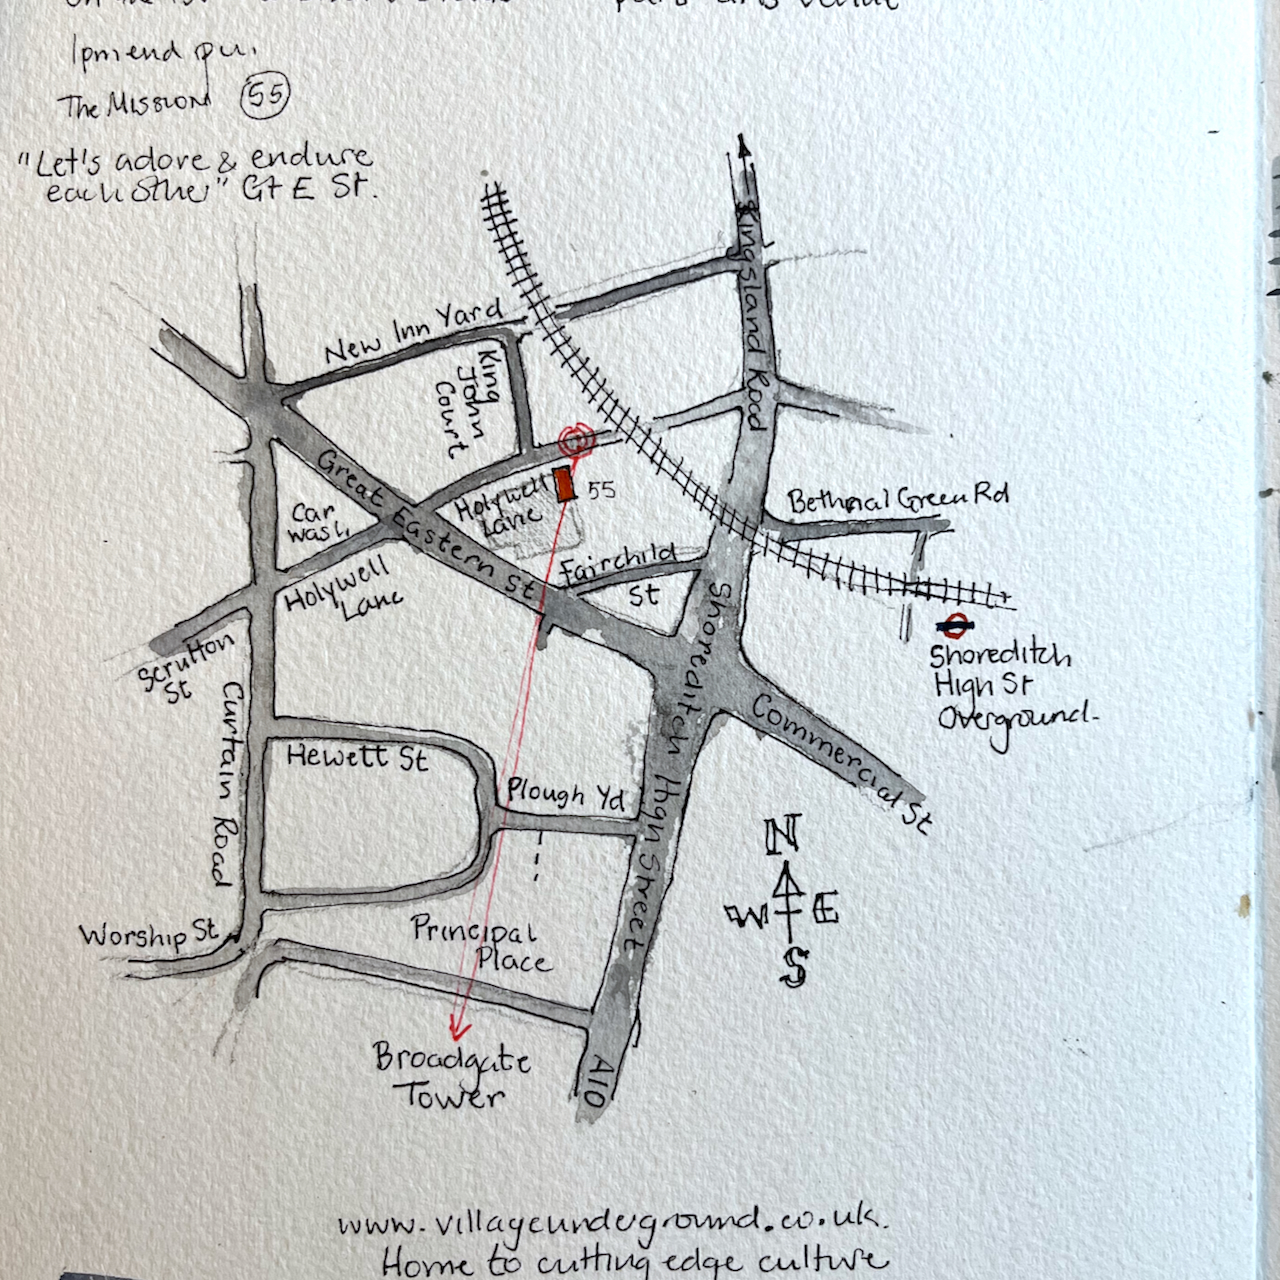 1pm end
The Mission 55
"Let's adore & endure
each other" Gt E St.
Kingsland Road
New Inn Yard
King
John
Court
Great Eastern St
Car
wash
Holywell
Lane
55
Bethnal Green Rd
Holywell
Lane
Fairchild
St
Scrutton
St
Shoreditch
High St
Overground
Shoreditch High Street
Commercial St
Curtain Road
Hewett St
Plough Yd
N
W E
S
Worship St
Principal
Place
Broadgate
Tower
A10
www.villageunderground.co.uk.
Home to cutting edge culture